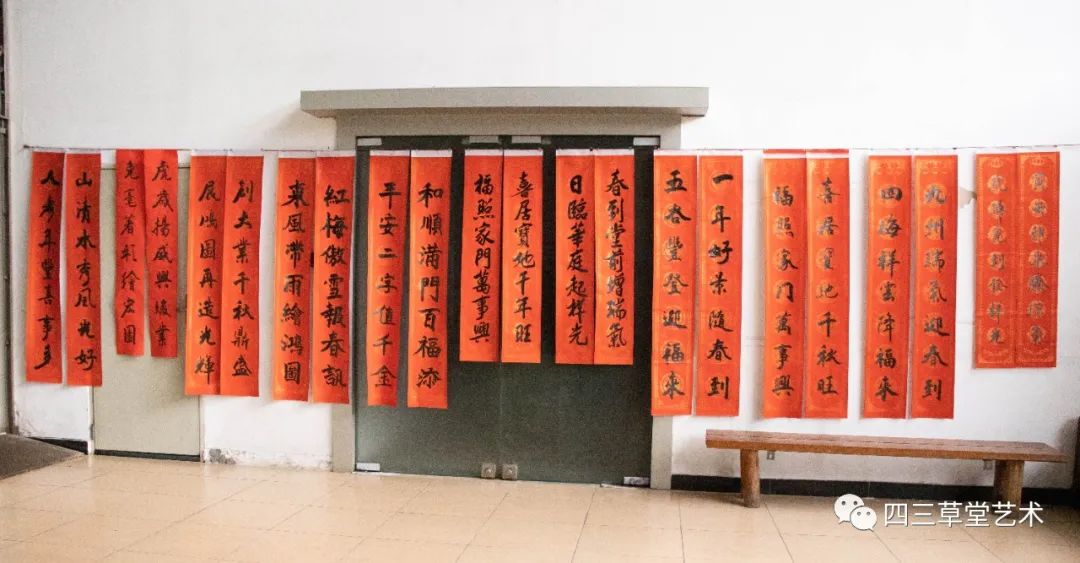 九州瑞氣迎春到
四海祥雲降福來
喜居寶地千秋旺
福照家門萬事興
一年好景隨春到
五谷豐登迎福來
春到堂前增瑞氣
日臨華庭起祥光
喜居寶地千年旺
福照家門萬事興
和順滿門百福添
平安二字值千金
紅梅傲雪報春訊
東風帶雨繪鴻圖
創大業千秋鼎盛
展鴻圖再造光輝
虎歲揚威興駿業
兔毫着彩繪宏圖
山清水秀風光好
人壽年豐喜事多
四三草堂艺术